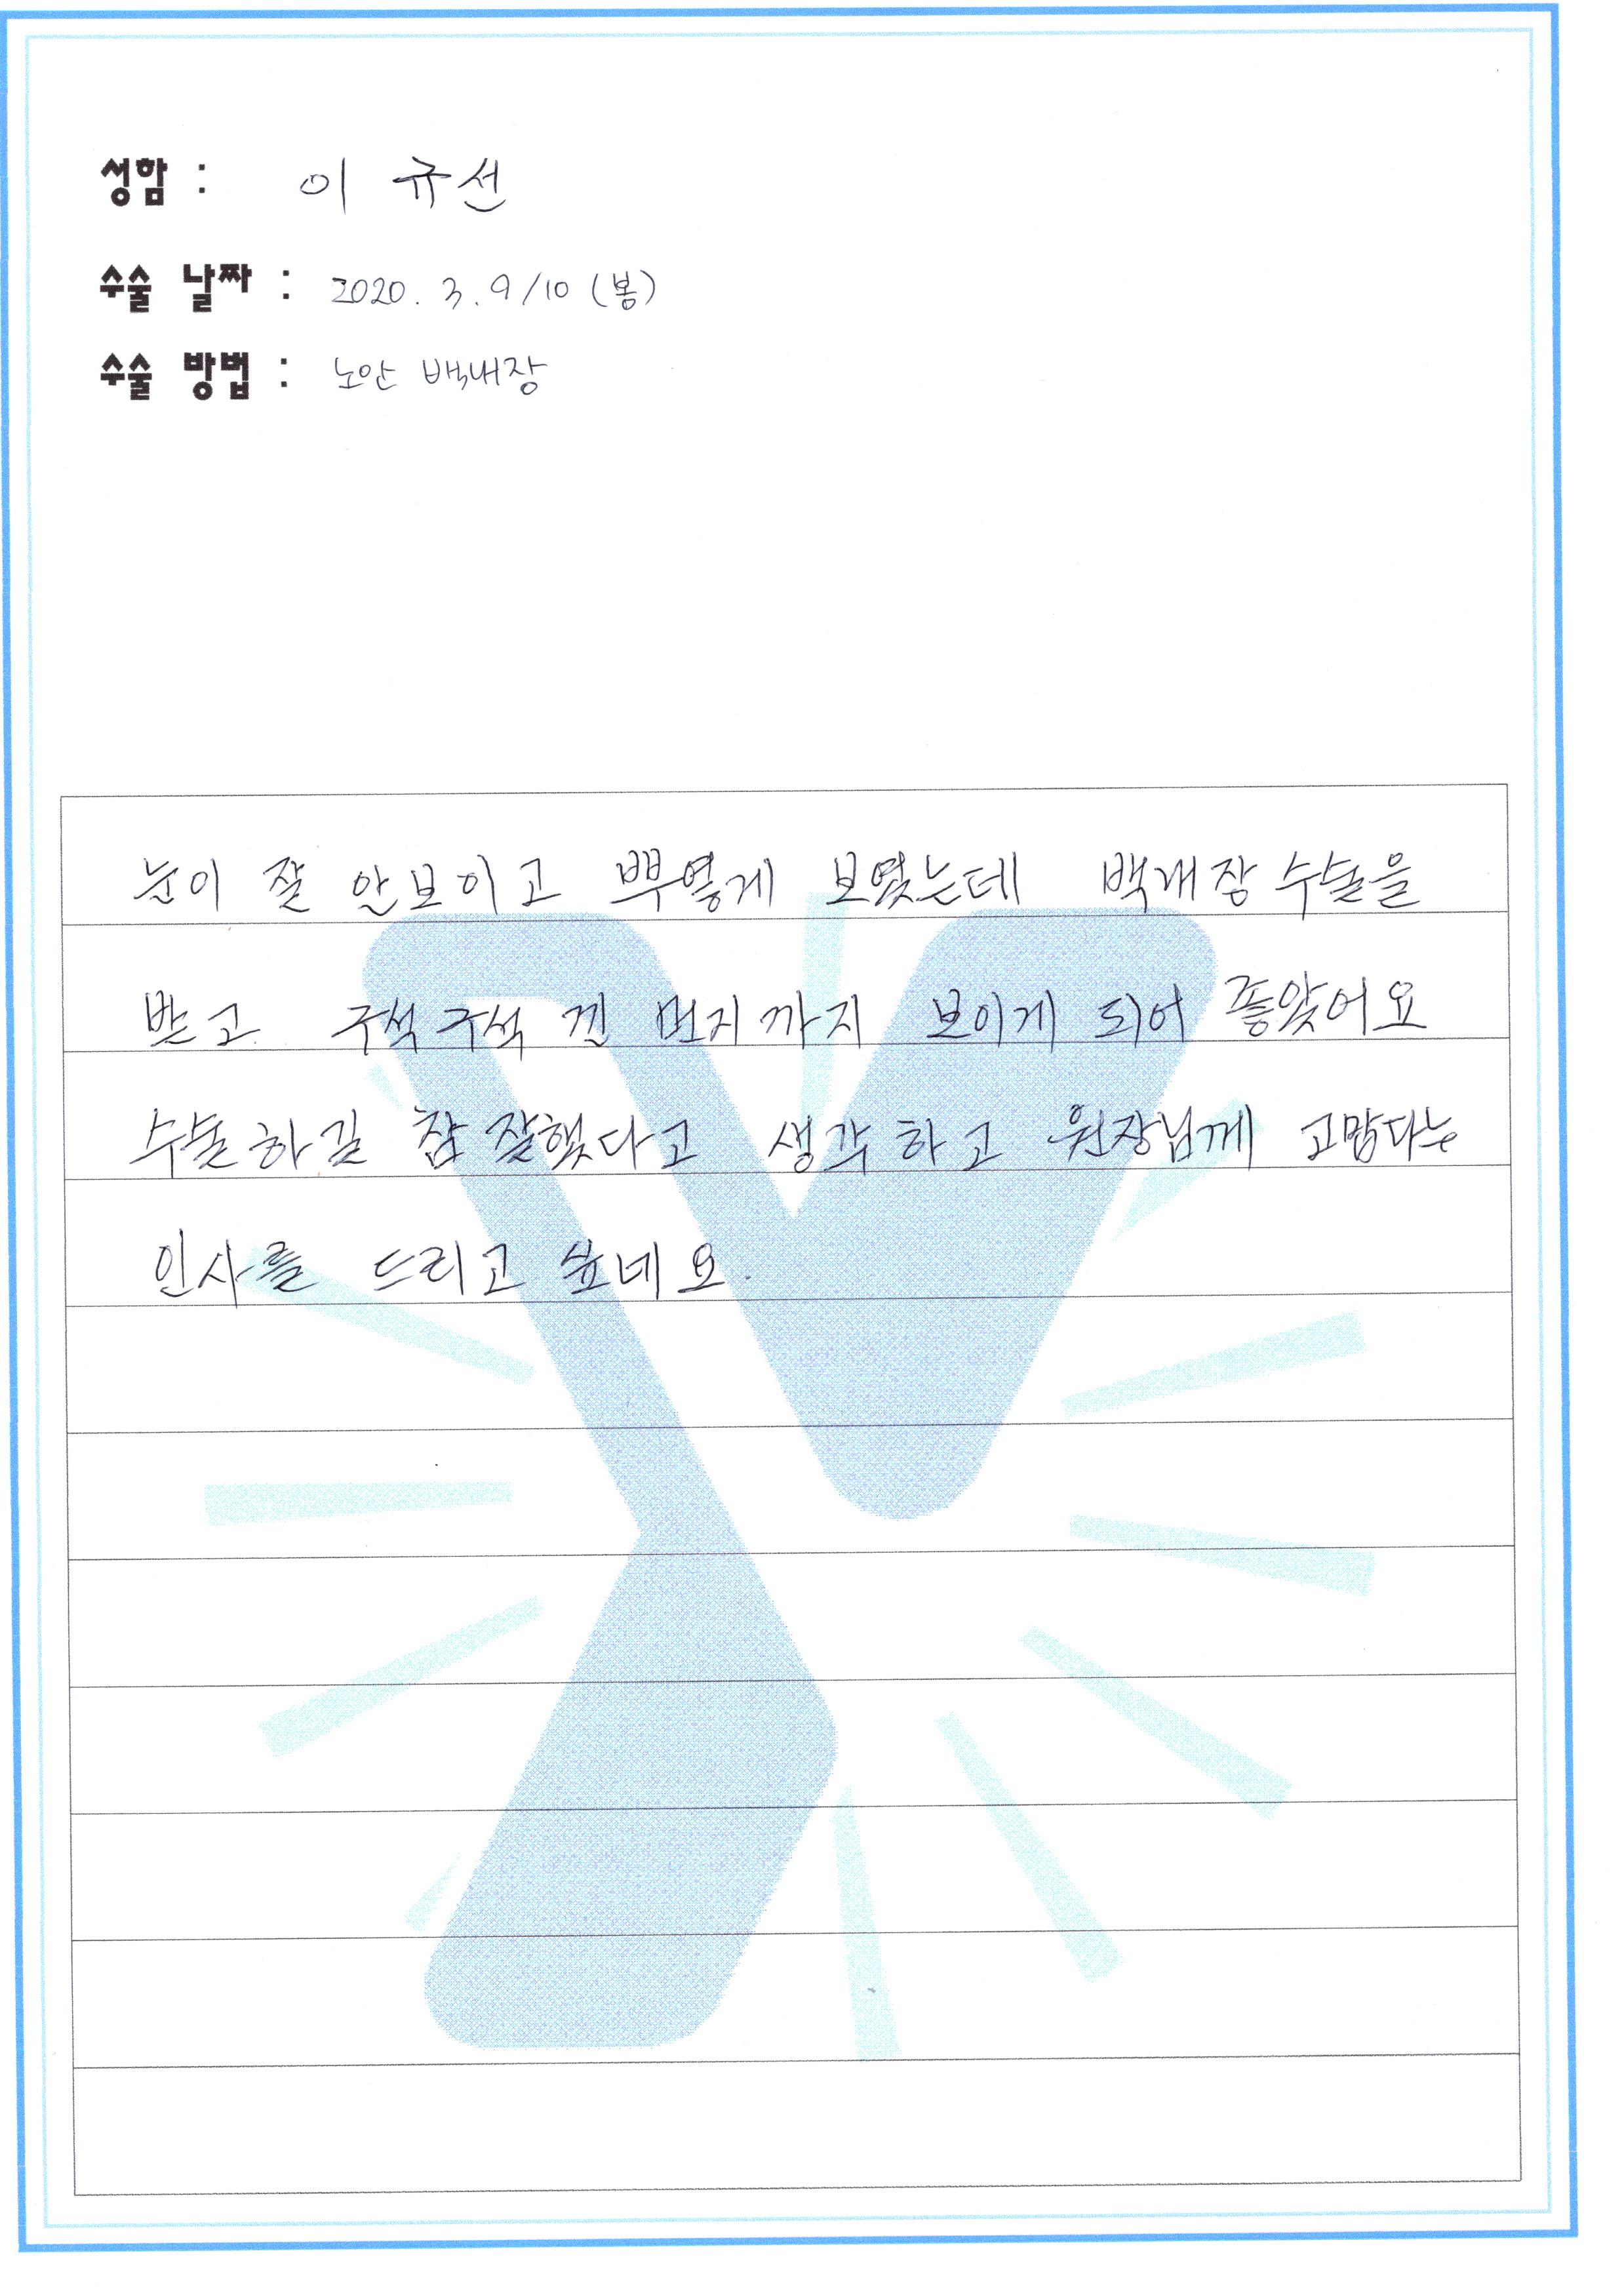 성함 : 이 규선
수술 날짜 : 2020. 3. 9/10 (봉)
수술 방법 : 노안 백내장
눈이 잘 안보이고 뿌옇게 보였는데 백내장 수술을
받고 구석구석 낀 먼지까지 보이게 되어 좋았어요
수술하길 참 잘했다고 생각하고 원장님께 고맙다는
인사를 드리고 싶네요.